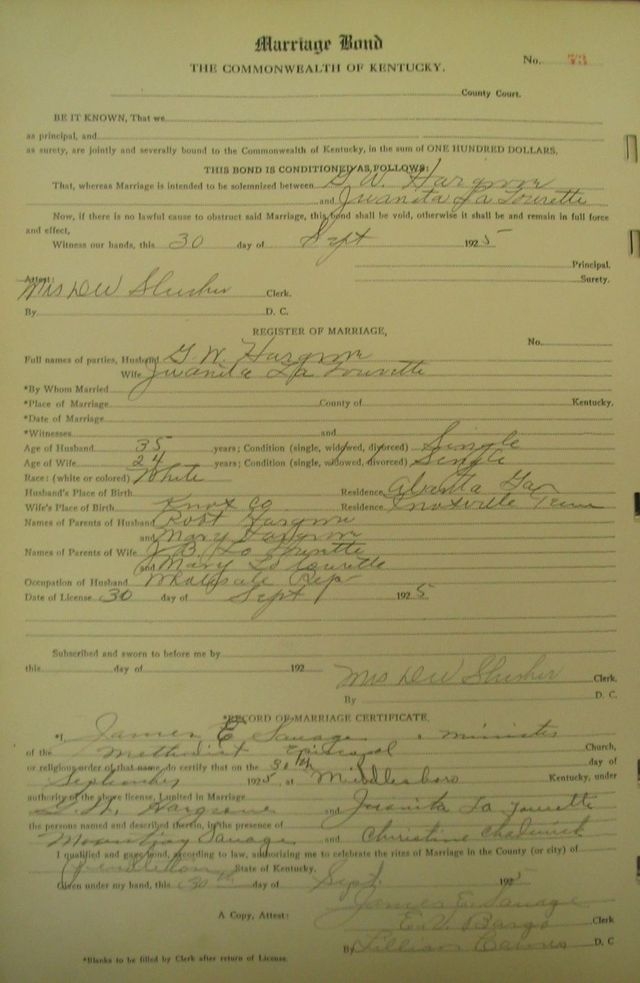 Marriage Bond
THE COMMONWEALTH OF KENTUCKY.
No.
County Court.
BE IT KNOWN, That we
as principal, and
as surety, are jointly and severally bound to the Commonwealth of Kentucky, in the sum of ONE HUNDRED DOLLARS.
THIS BOND IS CONDITIONED AS FOLLOWS:
That, whereas Marriage is intended to be solemnized between G. W. Hargrove
and Juanita La Tourette
Now, if there is no lawful cause to obstruct said Marriage, this bond shall be void, otherwise it shall be and remain in full force
and effect,
Witness our hands, this 30 day of Sept 1925
Principal.
Surety.
Attest:
Mrs D W Slusher Clerk.
By D. C.
REGISTER OF MARRIAGE,
No.
Full names of parties, Husband G. W. Hargrove
Wife Juanita La Tourette
*By Whom Married
*Place of Marriage County of Kentucky.
*Date of Marriage
*Witnesses and
Age of Husband 35 years; Condition (single, widowed, divorced) Single
Age of Wife 24 years; Condition (single, widowed, divorced) Single
Race: (white or colored) White
Husband's Place of Birth Residence Ga
Wife's Place of Birth Knox Co Residence Knoxville Tenn
Names of Parents of Husband Robt Hargrove
and Mary Hargrove
Names of Parents of Wife J. B. La Tourette
and Mary La Tourette
Occupation of Husband Wholesale Rep
Date of License 30 day of Sept 1925
Subscribed and sworn to before me by
this day of 192
Mrs D W Slusher Clerk.
By D. C.
*RECORD OF MARRIAGE CERTIFICATE,
*I, James E. Savage, minister
of the Methodist Episcopal Church,
or religious order of that name, do certify that on the 30th day of
September 1925, at Middlesboro Kentucky, under
authority of the above license, I united in Marriage
G. W. Hargrove and Juanita La Tourette
the persons named and described therein, in the presence of
Savage and Christine Chadwick
I qualified and gave bond, according to law, authorizing me to celebrate the rites of Marriage in the County (or city) of
Pendleton State of Kentucky.
Given under my hand, this 30th day of Sept. 1925
James E. Savage
A Copy, Attest: E. V. Bargo Clerk
By Lillian D. C
*Blanks to be filled by Clerk after return of License